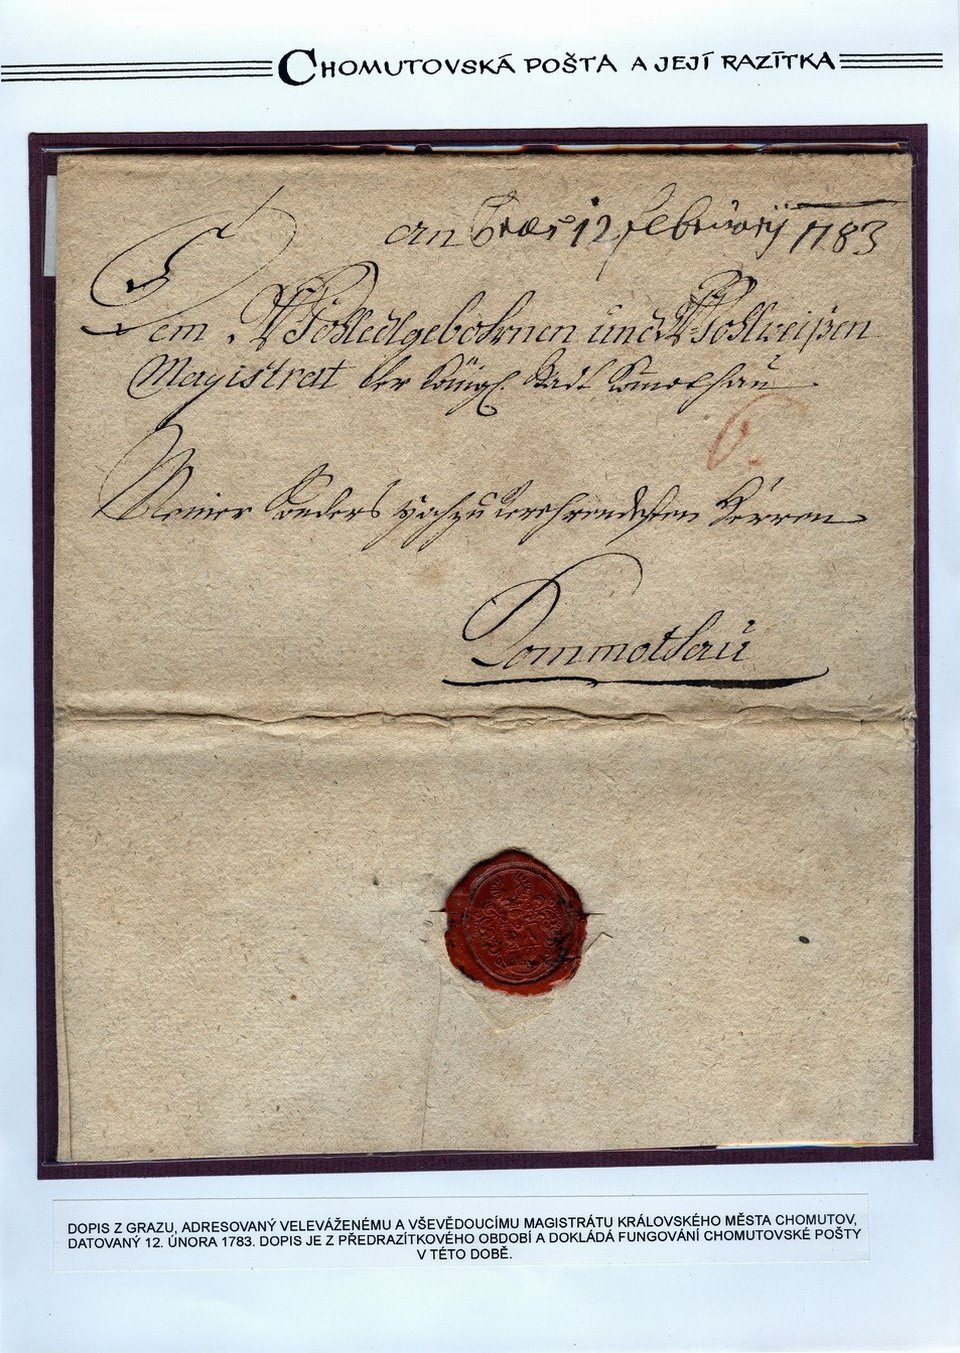 CHOMUTOVSKÁ POŠTA A JEJÍ RAZÍTKA
12 februarij 1783
Dem Wohledlgebohrnen und Wohlweißen
Magistrat der Königl. Stadt Comothau
6.
Meiner besonders hochzuverehrendesten Herren
Commothau
DOPIS Z GRAZU, ADRESOVANÝ VELEVÁŽENÉMU A VŠEVĚDOUCÍMU MAGISTRÁTU KRÁLOVSKÉHO MĚSTA CHOMUTOV,
DATOVANÝ 12. ÚNORA 1783. DOPIS JE Z PŘEDRAZÍTKOVÉHO OBDOBÍ A DOKLÁDÁ FUNGOVÁNÍ CHOMUTOVSKÉ POŠTY
V TÉTO DOBĚ.